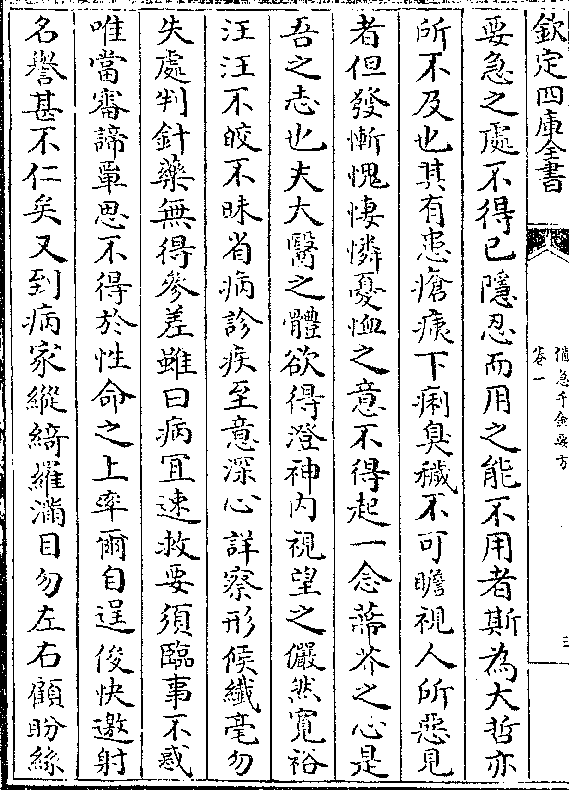 欽定四庫全書
備急千金要方
卷一
三
要急之處不得已隱忍而用之能不用者斯為大哲亦
所不及也其有患瘡痍下痢臭穢不可瞻視人所惡見
者但發慚愧悽憐憂恤之意不得起一念蔕芥之心是
吾之志也夫大醫之體欲得澄神内視望之儼然寛裕
汪汪不皎不昧省病診疾至意深心詳察形候纎毫勿
失處判針藥無得參差雖曰病冝速救要須臨事不惑
唯當審諦覃思不得於性命之上率爾自逞俊快邀射
名譽甚不仁矣又到病家縱綺羅滿目勿左右顧盼絲